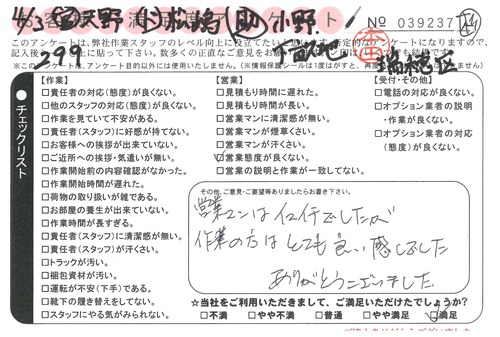 4/3 天野 小野
№ 039237
このアンケートは、弊社作業スタッフのレベル向上に役立てたいと
399
チェックリスト
【作業】
□責任者の対応(態度)が良くない。
□他のスタッフの対応(態度)が良くない。
□作業を見ていて不安がある。
□責任者(スタッフ)に好感が持てない。
□お客様への挨拶が出来ていない。
□ご近所への挨拶・気遣いが無い。
□作業開始前の内容確認がなかった。
□作業開始時間が遅れた。
□荷物の取り扱いが雑である。
□お部屋の養生が出来ていない。
□作業時間が長すぎる。
□責任者(スタッフ)に清潔感が無い。
□責任者(スタッフ)が汗くさい。
□トラックが汚い。
□梱包資材が汚い。
□運転が不安(下手)である。
□靴下の履き替えをしてない。
□スタッフにやる気がみられない。
【営業】
□見積もり時間に遅れた。
□見積もり時間が長い。
□営業マンに清潔感が無い。
□営業マンが煙草くさい。
□営業マンが汗くさい。
☑営業態度が良くない。
□営業の説明と作業が一致してない。
【受付・その他】
□電話の対応が良くない。
□オプション業者の説明
・作業が良くない。
□オプション業者の対応
(態度)が良くない。
その他、ご意見・ご要望等ありましたらお書き下さい。
営業マンはイマイチでしたが
作業の方はとても良い感じでした
ありがとうございました
☆当社をご利用いただきまして、ご満足いただけたでしょうか?
□不満 □やや不満 □普通 □やや満足 ☑満足